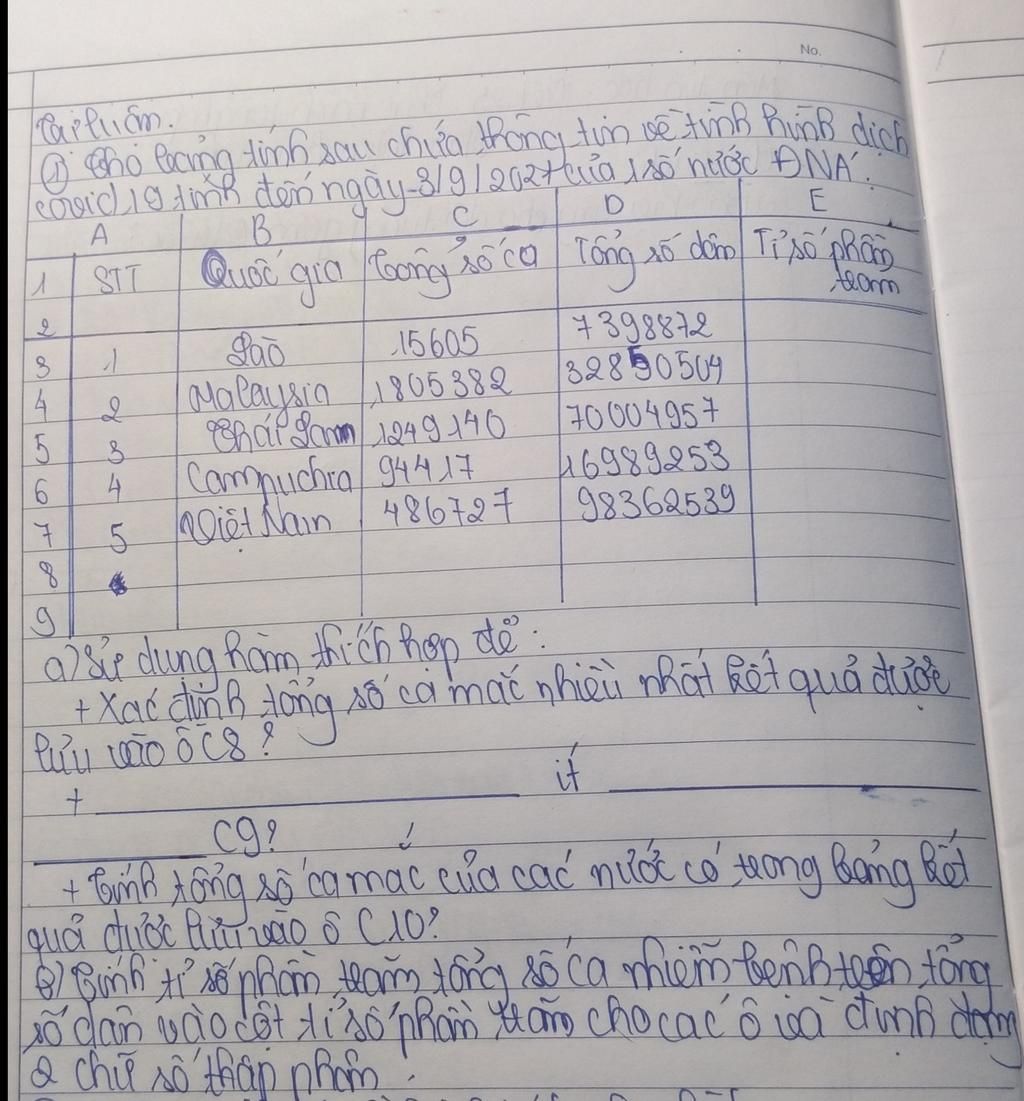 No.
Tự luận.
① Cho bảng tính sau chứa thông tin về tình hình dịch
covid 19 tính đến ngày 3/9/2021 của 1 số nước ĐNÁ.
A B C D E
1 STT Quốc gia Tổng số ca Tổng số dân Tỉ số phần
trăm
2
3 1 Lào 15605 7398872
4 2 Malaysia 1805382 32850504
5 3 Thái Lan 1249140 70004957
6 4 Campuchia 94417 16989253
7 5 Việt Nam 486727 98362539
8
9
a) Sử dụng hàm thích hợp để :
+ Xác định tổng số ca mắc nhiều nhất kết quả được
lưu vào ô C8 ?
+ ít
C9?
+ Tính tổng số ca mắc của các nước có trong bảng kết
quả được lưu vào ô C10?
b) Tính tỉ số phần trăm tổng số ca nhiễm bệnh trên tổng
số dân vào cột tỉ số phần trăm cho các ô và định dạng
2 chữ số thập phân.